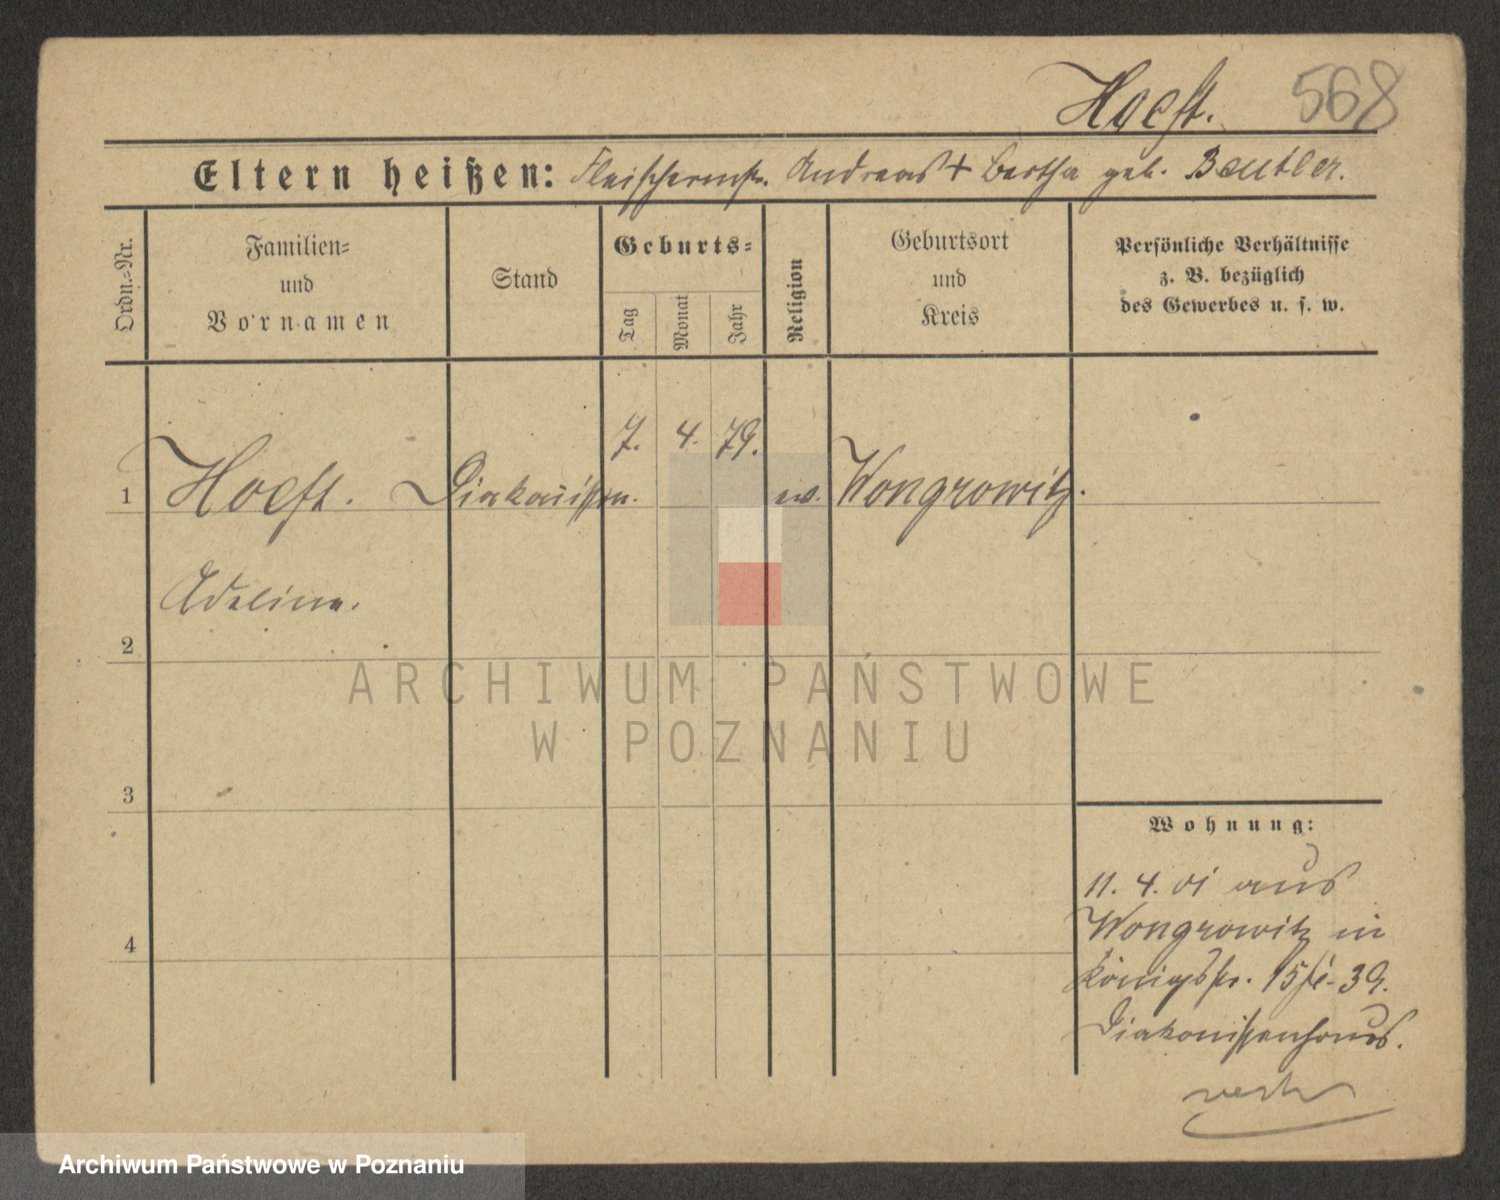 Hoeft. 568
Eltern heißen: Fleischermstr. Andreas + Bertha geb. Beutler.
Ordn.-Nr.
Familien-
und
Vornamen
Stand
Geburts-
Tag
Monat
Jahr
Religion
Geburtsort
und
Kreis
Persönliche Verhältnisse
z. B. bezüglich
des Gewerbes u. s. w.
1 Hoeft. Diakonissin. 7. 4. 79. ev. Wongrowitz.
Adeline.
2
3
4
Wohnung:
11. 4. 01 aus
Wongrowitz in
Königsstr. 15
Diakonissenhaus.
ARCHIWUM PAŃSTWOWE
W POZNANIU
Archiwum Państwowe w Poznaniu